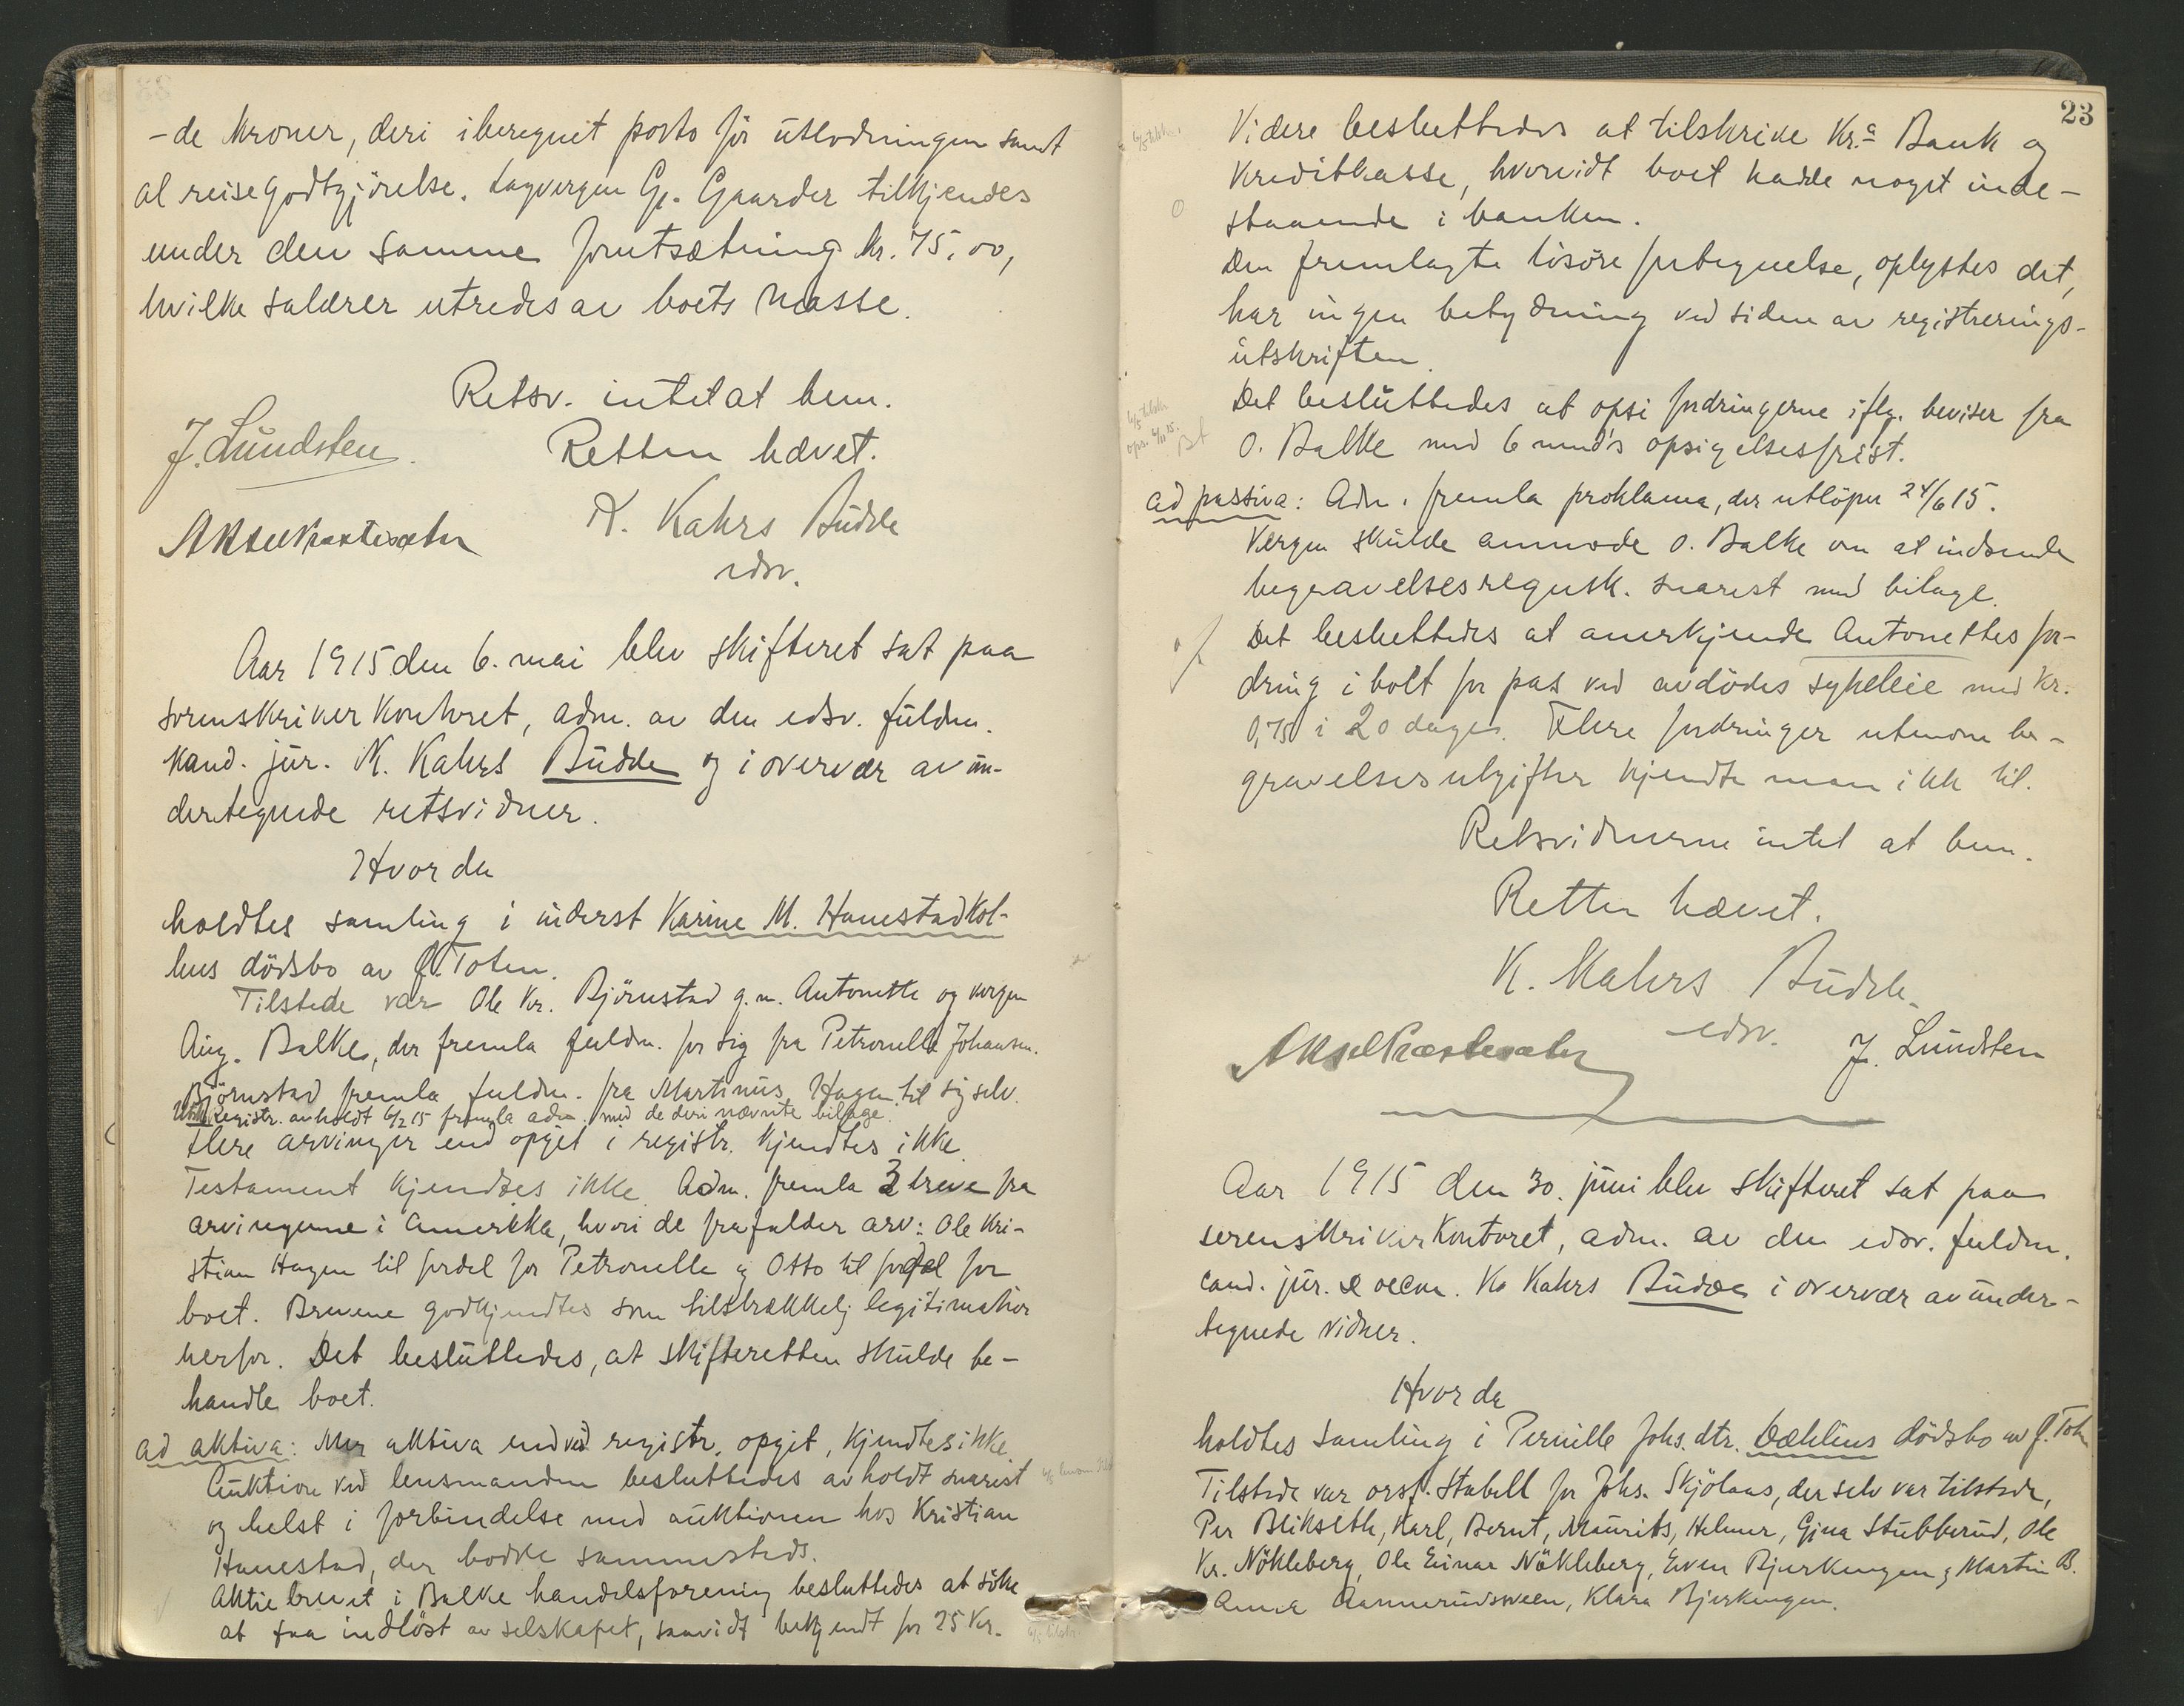 -de kroner, deri iberegnet porto för utlodningen samt
al reisegodtgjörelse. Lagvergen G. Gaarder tilkjendes
under den samme forutsætning kr. 75,00,
hvilke salærer utredes av boets masse.
Retsv. intet at bem.
J. Lundsten
Retten hævet.
K. Kahrs Budde
edsv.
Aar 1915 den 6. mai blev skifteret sat paa
sorenskriverkontoret, adm. av den edsv. fuldm.
kand. jur. K. Kahrs Budde og i overvær av un-
dertegnede retsvidner.
Hvorda
holdtes samling i inderst Karine M. Hanestadkol-
hus dödsbo av Ö. Toten.
Tilstede var Ole Kr. Björnstad g.m. Antonette og vergen
Aug. Balke, der fremla fuldm. for sig fra Petronelle Johansen.
Björnstad fremla fuldm. fra Martinus Hagen til sig selv.
Utskr. Registr. avholdt 6/2 15 fremla adm. med de deri nævnte bilage.
Flere arvinger end opgit i registr. kjendtes ikke.
Testament kjendtes ikke. Adm. fremla 3 breve fra
arvingerne i Amerikka, hvori de frafalder arv: Ole Kri-
stian Hagen til fordel for Petronelle og Otto til fordel for
boet. Brevene godkjendtes som tilstrækkelig legitimation
herfor. Det besluttedes, at skifteretten skulde be-
handle boet.
ad aktiva: Mer aktiva end ved registr. opgit, kjendtes ikke.
Auktion ved lensmanden besluttedes avholdt snarest
og helst i forbindelse med auktionen hos Kristian
Hanestad, der bodde sammesteds.
Aktiebrevet i Balke handelsforening besluttedes at söke
at faa indlöst av selskapet, saavidt bekjendt for 25 kr.
23
Videre besluttedes at tilskrive Kr.a Bank og
Kreditkasse, hvorvidt boet hadde noget inde-
staaende i banken.
Den fremlagte lösörefortegnelse, oplystes det,
har ingen betydning ved siden av registrerings-
utskriften.
Det besluttedes at opsi fordringerne iflg. beviser fra
O. Balke med 6 mnd's opsigelsesfrist.
ad passiva: Adm. fremla proklama, der utlöper 24/6 15.
Vergen skulde anmode O. Balke om at indsende
begravelsesregnsk. snarest med bilage.
Det besluttedes at anerkjende Antonettes for-
dring i boet for pas ved avdödes sykeleie med kr.
0,75 i 20 dager. Flere fordringer utenom be-
gravelsesutgifter kjendte man ikke til.
Retsvidnerne intet at bem.
Retten hævet.
K. Kahrs Budde
edsv.
J. Lundsten
Aar 1915 den 30. juni blev skifteret sat paa
sorenskriverkontoret, adm. av den edsv. fuldm.
cand. jur. & oecon. K. Kahrs Budde i overvær av under-
tegnede vidner.
Hvorda
holdtes samling i Pernille Johs.dtr. Dæhlins dödsbo av Ö. Toten
Tilstede var orsf. Stabell for Johs. Skjölaas, der selv var tilstede,
Per Blikseth, Karl, Bernt, Maurits, Helmer, Gina Stubberud, Ole
Kr. Nökleberg, Ole Einar Nökleberg, Even Bjerkengen & Martin B.
Anna Aannerudsveen, Klara Bjerkengen.